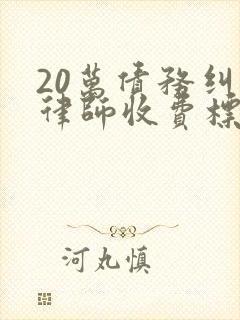 20萬債務纠
律師收費標
河丸慎